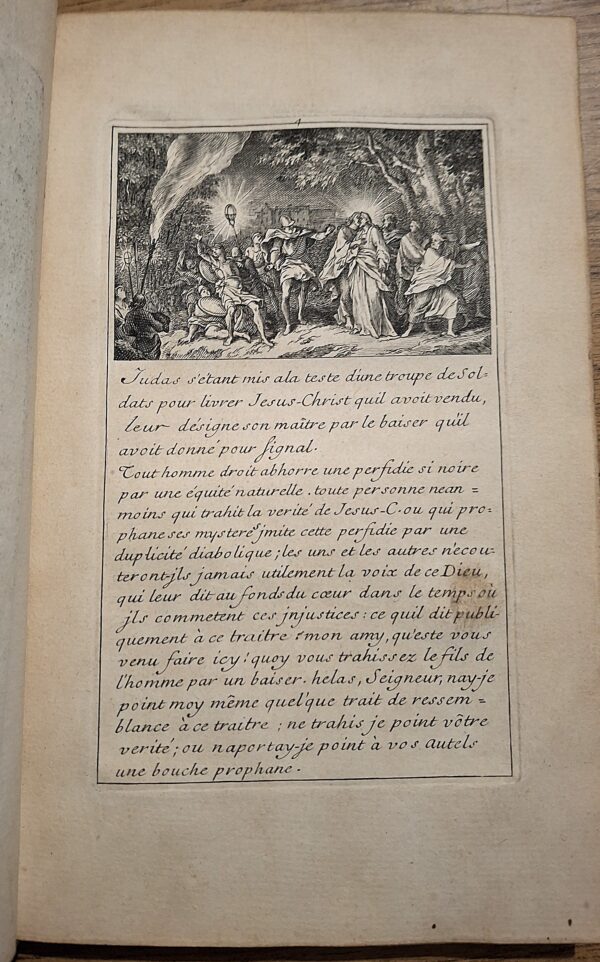 1
Judas s'etant mis a la teste d'une troupe de Sol-
dats pour livrer Jesus-Christ quil avoit vendu,
leur désigne son maître par le baiser qu'il
avoit donné pour signal.
Tout homme droit abhorre une perfidie si noire
par une équité naturelle. toute personne nean=
moins qui trahit la verité de Jesus-C. ou qui pro=
phane ses mysteres jmite cette perfidie par une
duplicité diabolique; les uns et les autres n'ecou-
teront-jls jamais utilement la voix de ce Dieu,
qui leur dit au fonds du cœur dans le temps où
jls commetent ces jnjustices: ce quil dit publi-
quement à ce traitre: mon amy, qu'este vous
venu faire icy! quoy vous trahissez le fils de
l'homme par un baiser. helas, Seigneur, nay-je
point moy même quel'que trait de ressem=
blance à ce traitre; ne trahis je point vôtre
verité; ou naportay-je point à vos autels
une bouche prophane.